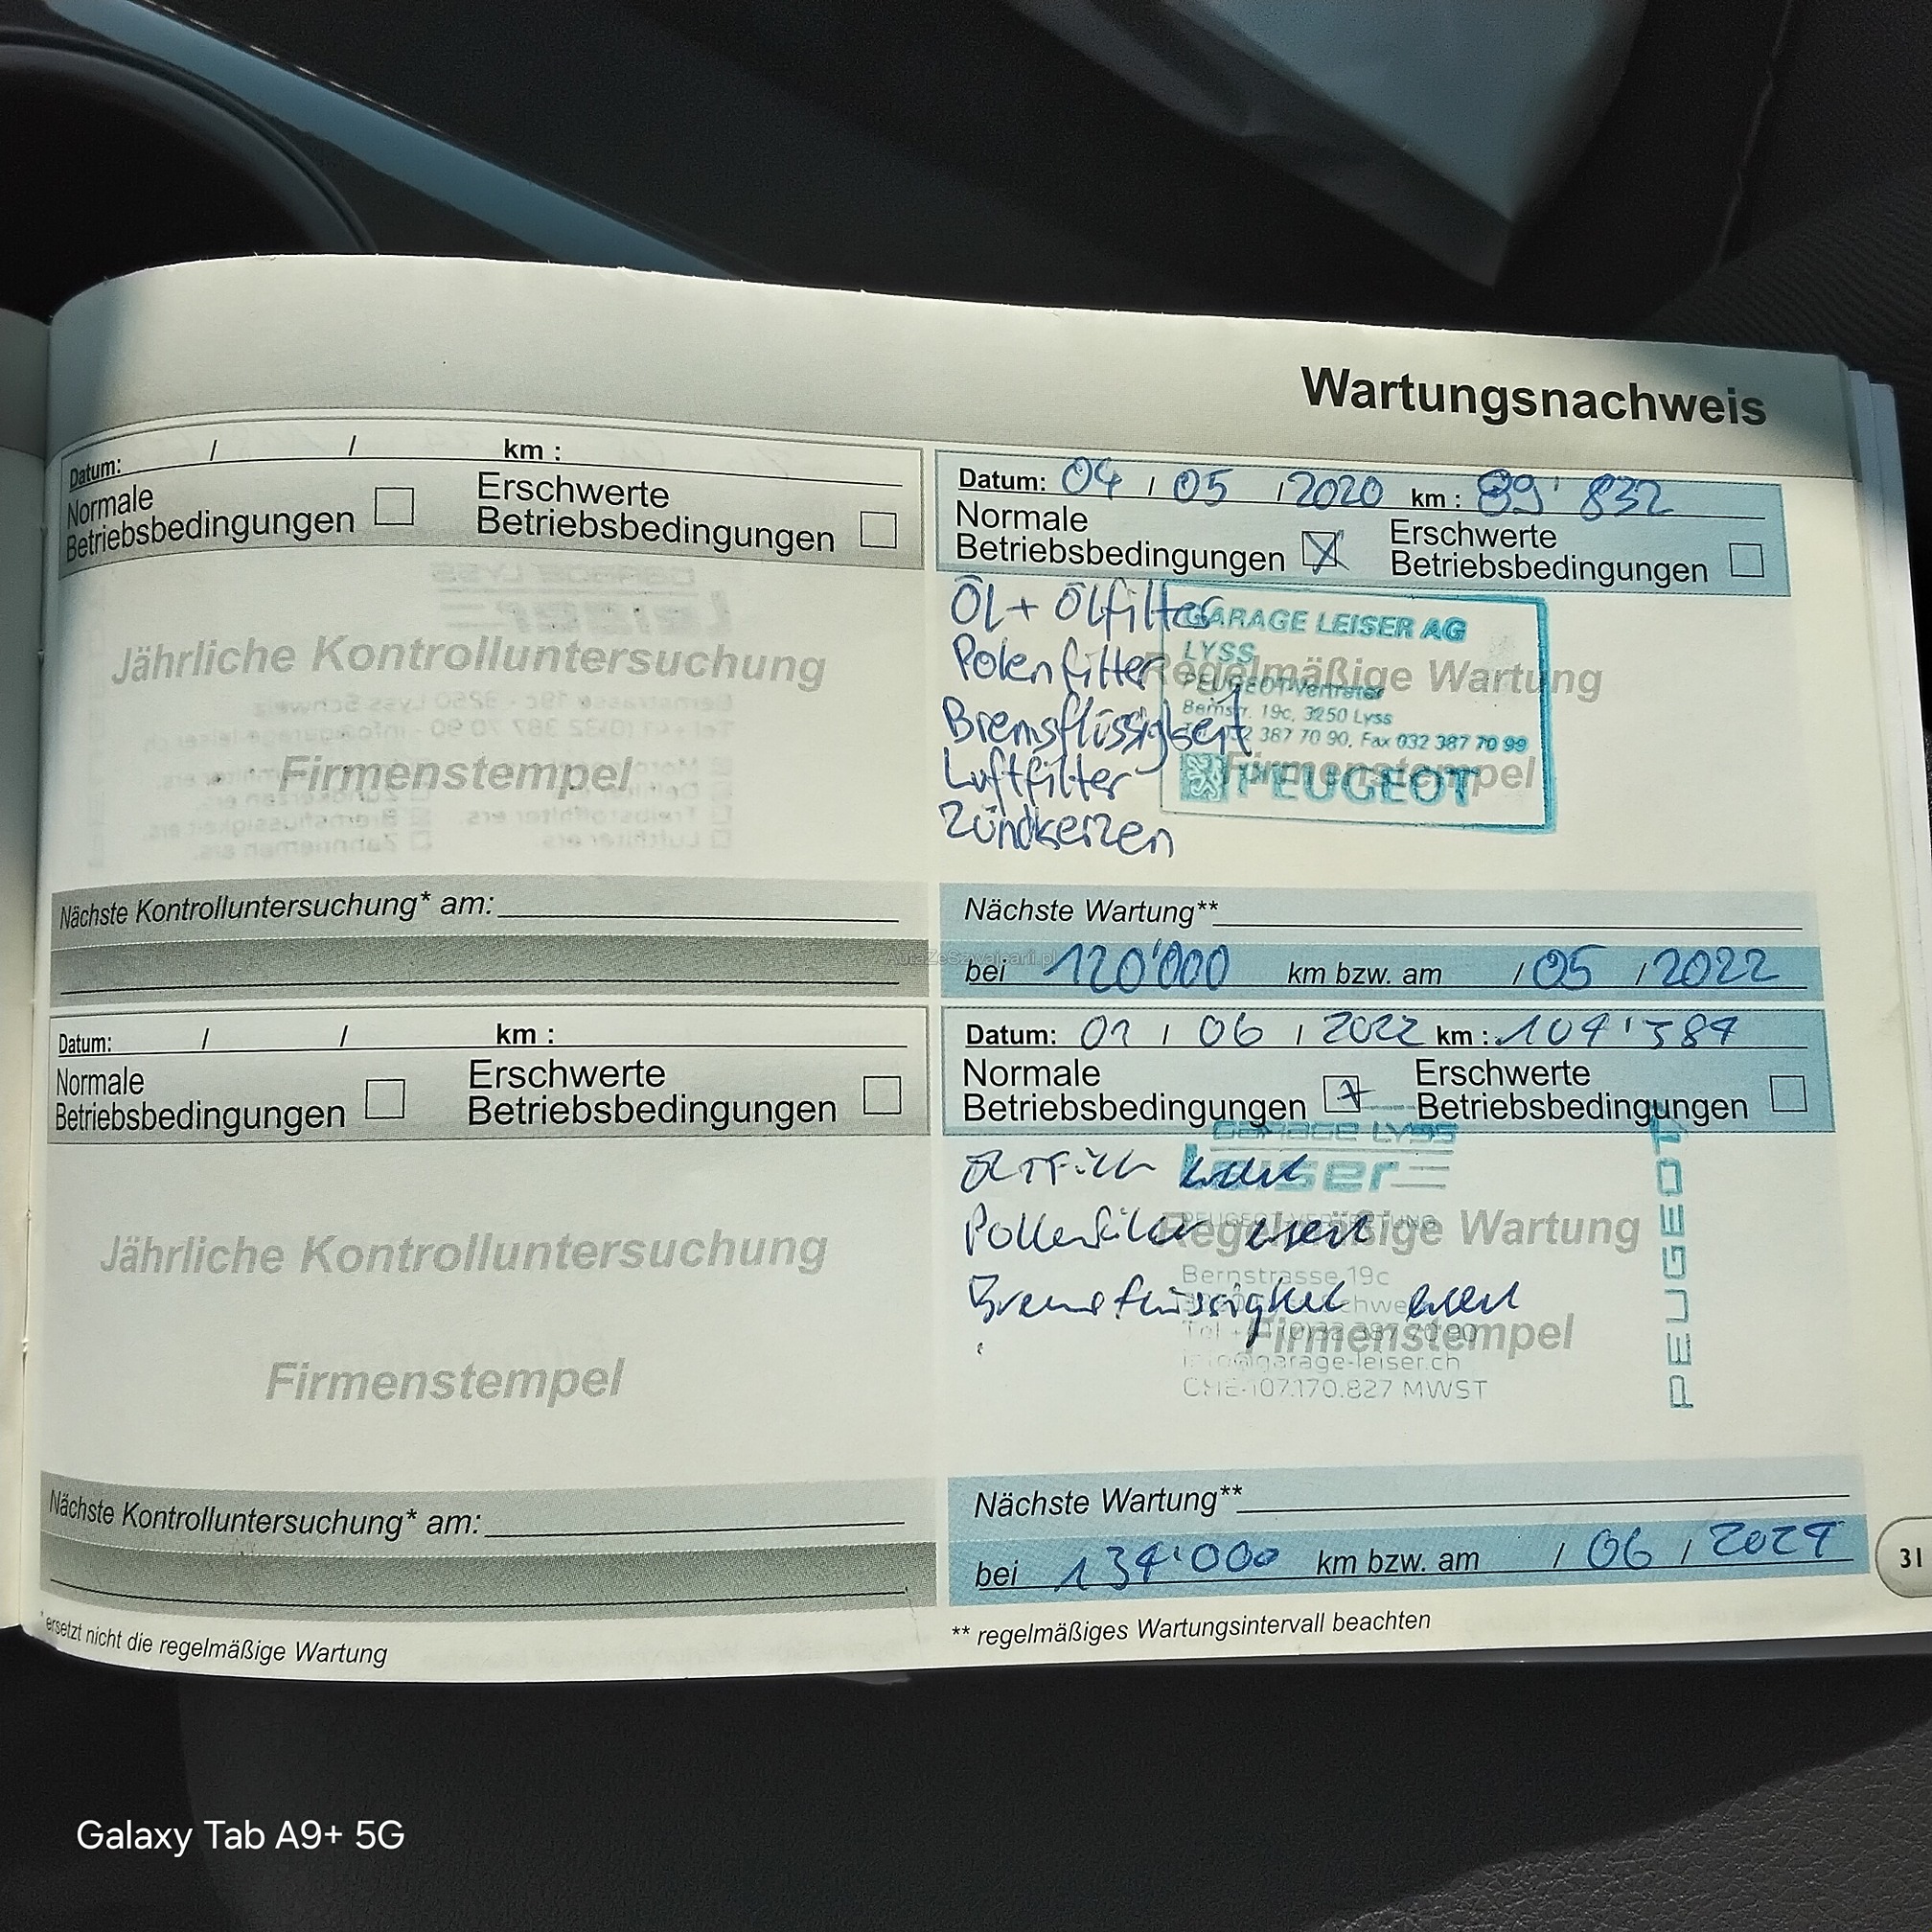 Wartungsnachweis
Datum: / / km :
Normale Betriebsbedingungen
Erschwerte Betriebsbedingungen
Jährliche Kontrolluntersuchung
Firmenstempel
Nächste Kontrolluntersuchung* am:
Datum: 04 / 05 / 2020 km : 89'832
Normale Betriebsbedingungen X
Erschwerte Betriebsbedingungen
Öl + Ölfilter
Polenfilter
Bremsflüssigkeit
Luftfilter
Zündkerzen
GARAGE LEISER AG
LYSS
PEUGEOT-Vertreter
Bernstr. 19c, 3250 Lyss
032 387 70 90, Fax 032 387 70 99
PEUGEOT
Regelmäßige Wartung
Firmenstempel
Nächste Wartung**
bei 120'000 km bzw. am / 05 / 2022
AutaZeSzwajcarii.pl
Datum: / / km :
Normale Betriebsbedingungen
Erschwerte Betriebsbedingungen
Jährliche Kontrolluntersuchung
Firmenstempel
Nächste Kontrolluntersuchung* am:
* ersetzt nicht die regelmäßige Wartung
Datum: 01 / 06 / 2022 km : 104'584
Normale Betriebsbedingungen
Erschwerte Betriebsbedingungen
GARAGE LYSS
Leiser
PEUGEOT-VERTRETUNG
Pollenfilter
Bremsflüssigkeit
Regelmäßige Wartung
Bernstrasse 19c
Firmenstempel
info@garage-leiser.ch
CHE-107.170.827 MWST
PEUGEOT
Nächste Wartung**
bei 134'000 km bzw. am / 06 / 2024
** regelmäßiges Wartungsintervall beachten
31
Galaxy Tab A9+ 5G